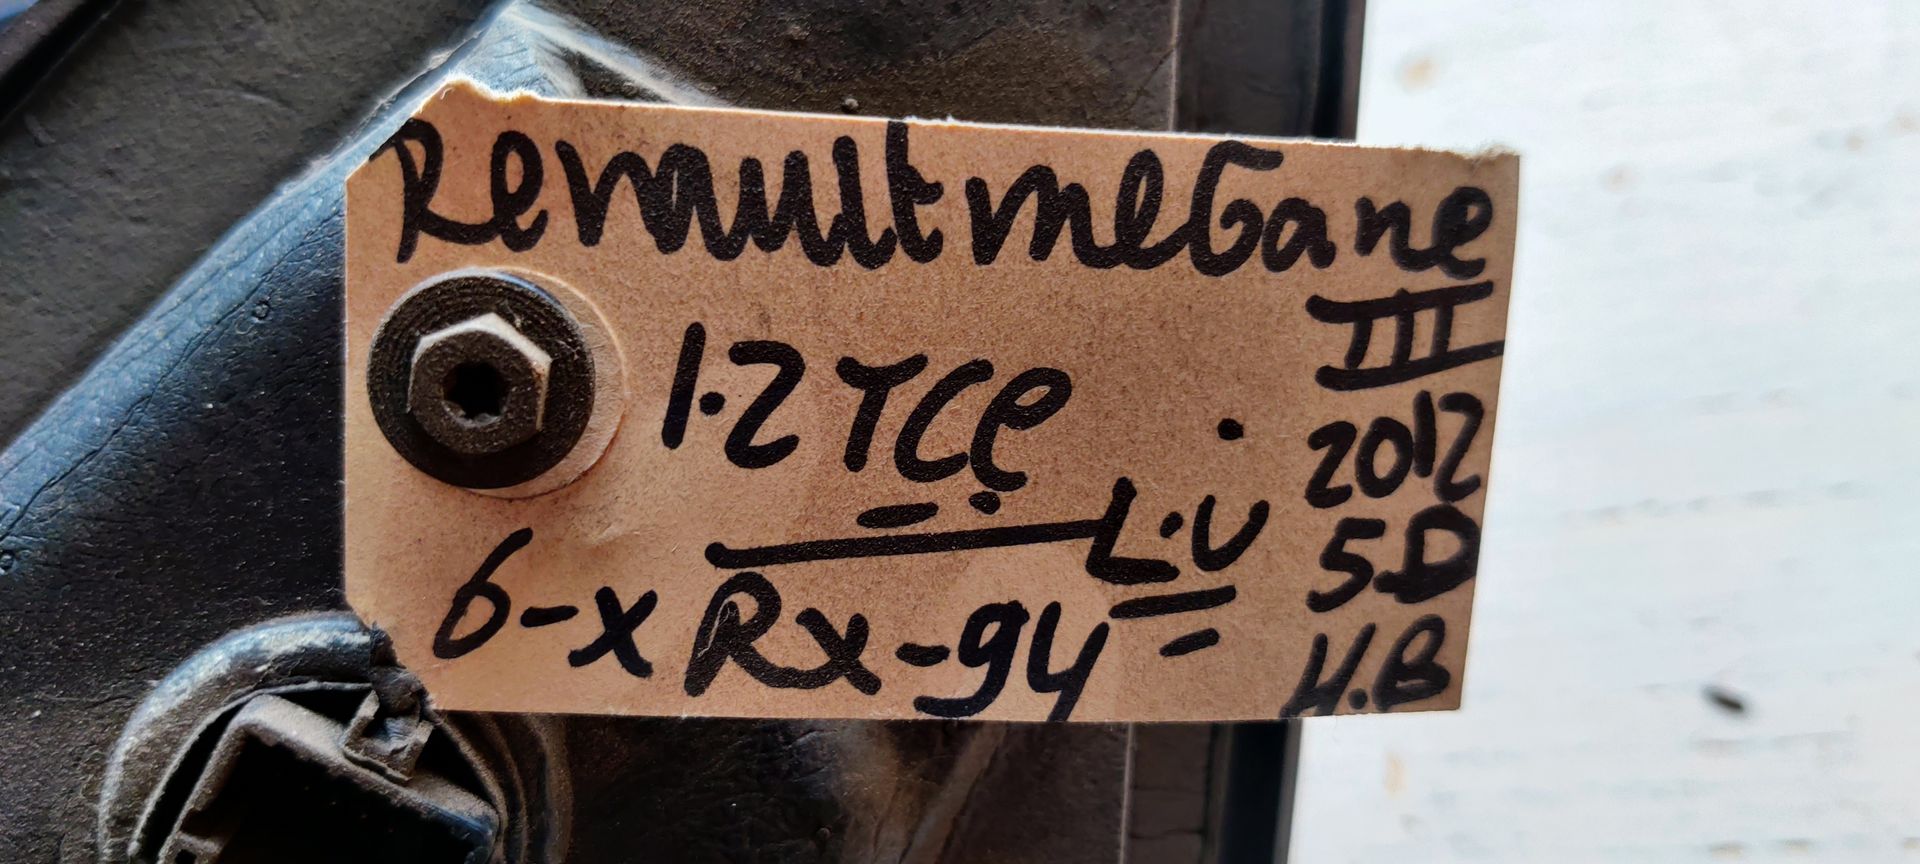 Renault meGane
III
1.2 TCe
2012
L.V
5D
6-x Rx-94
H.B